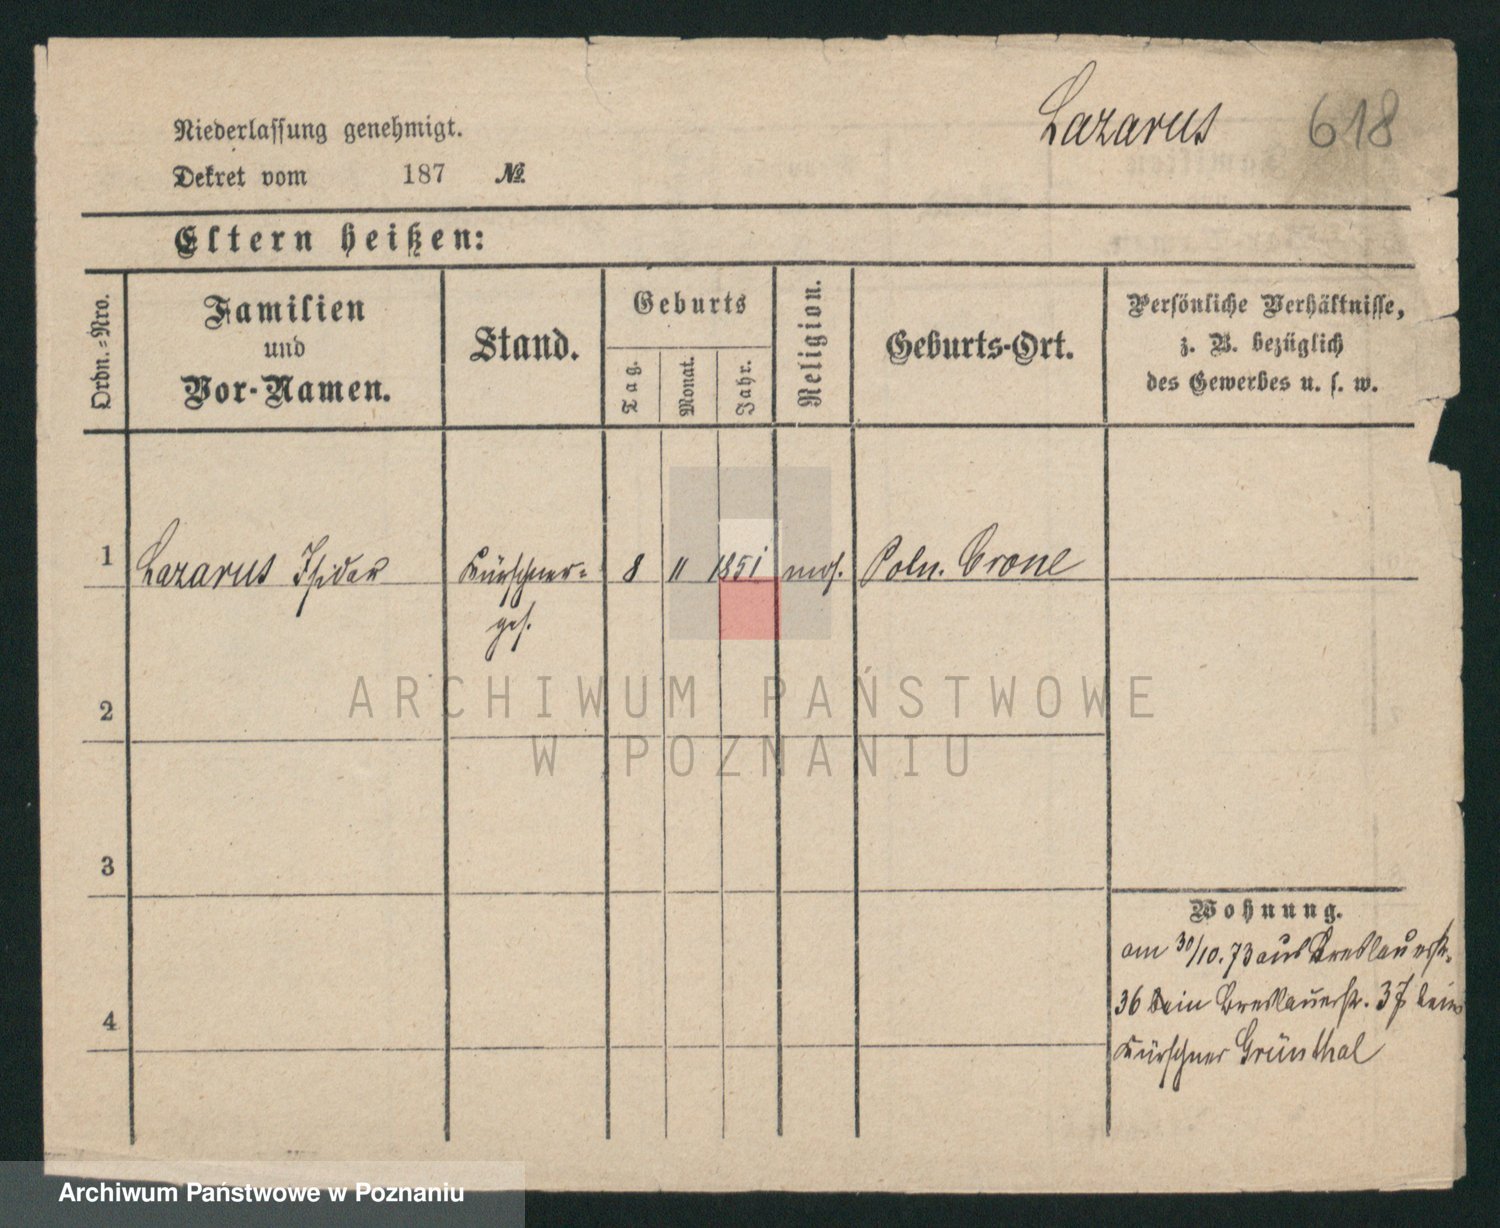 Lazarus 618
Niederlassung genehmigt.
Dekret vom 187 №
Eltern heißen:
Ordn.=Nro.
Familien
und
Vor-Namen.
Stand.
Geburts
Tag.
Monat.
Jahr.
Religion.
Geburts-Ort.
Persönliche Verhältnisse,
z. B. bezüglich
des Gewerbes u. s. w.
1 Lazarus Isidor Kürschner= 8 11 1851 mos. Poln. Crone
ges.
2
3
4
Wohnung.
am 30/10.73 aus Breslauerstr.
36 Breslauerstr. 37 beim
Kürschner Grünthal
ARCHIWUM PAŃSTWOWE
W POZNANIU
Archiwum Państwowe w Poznaniu